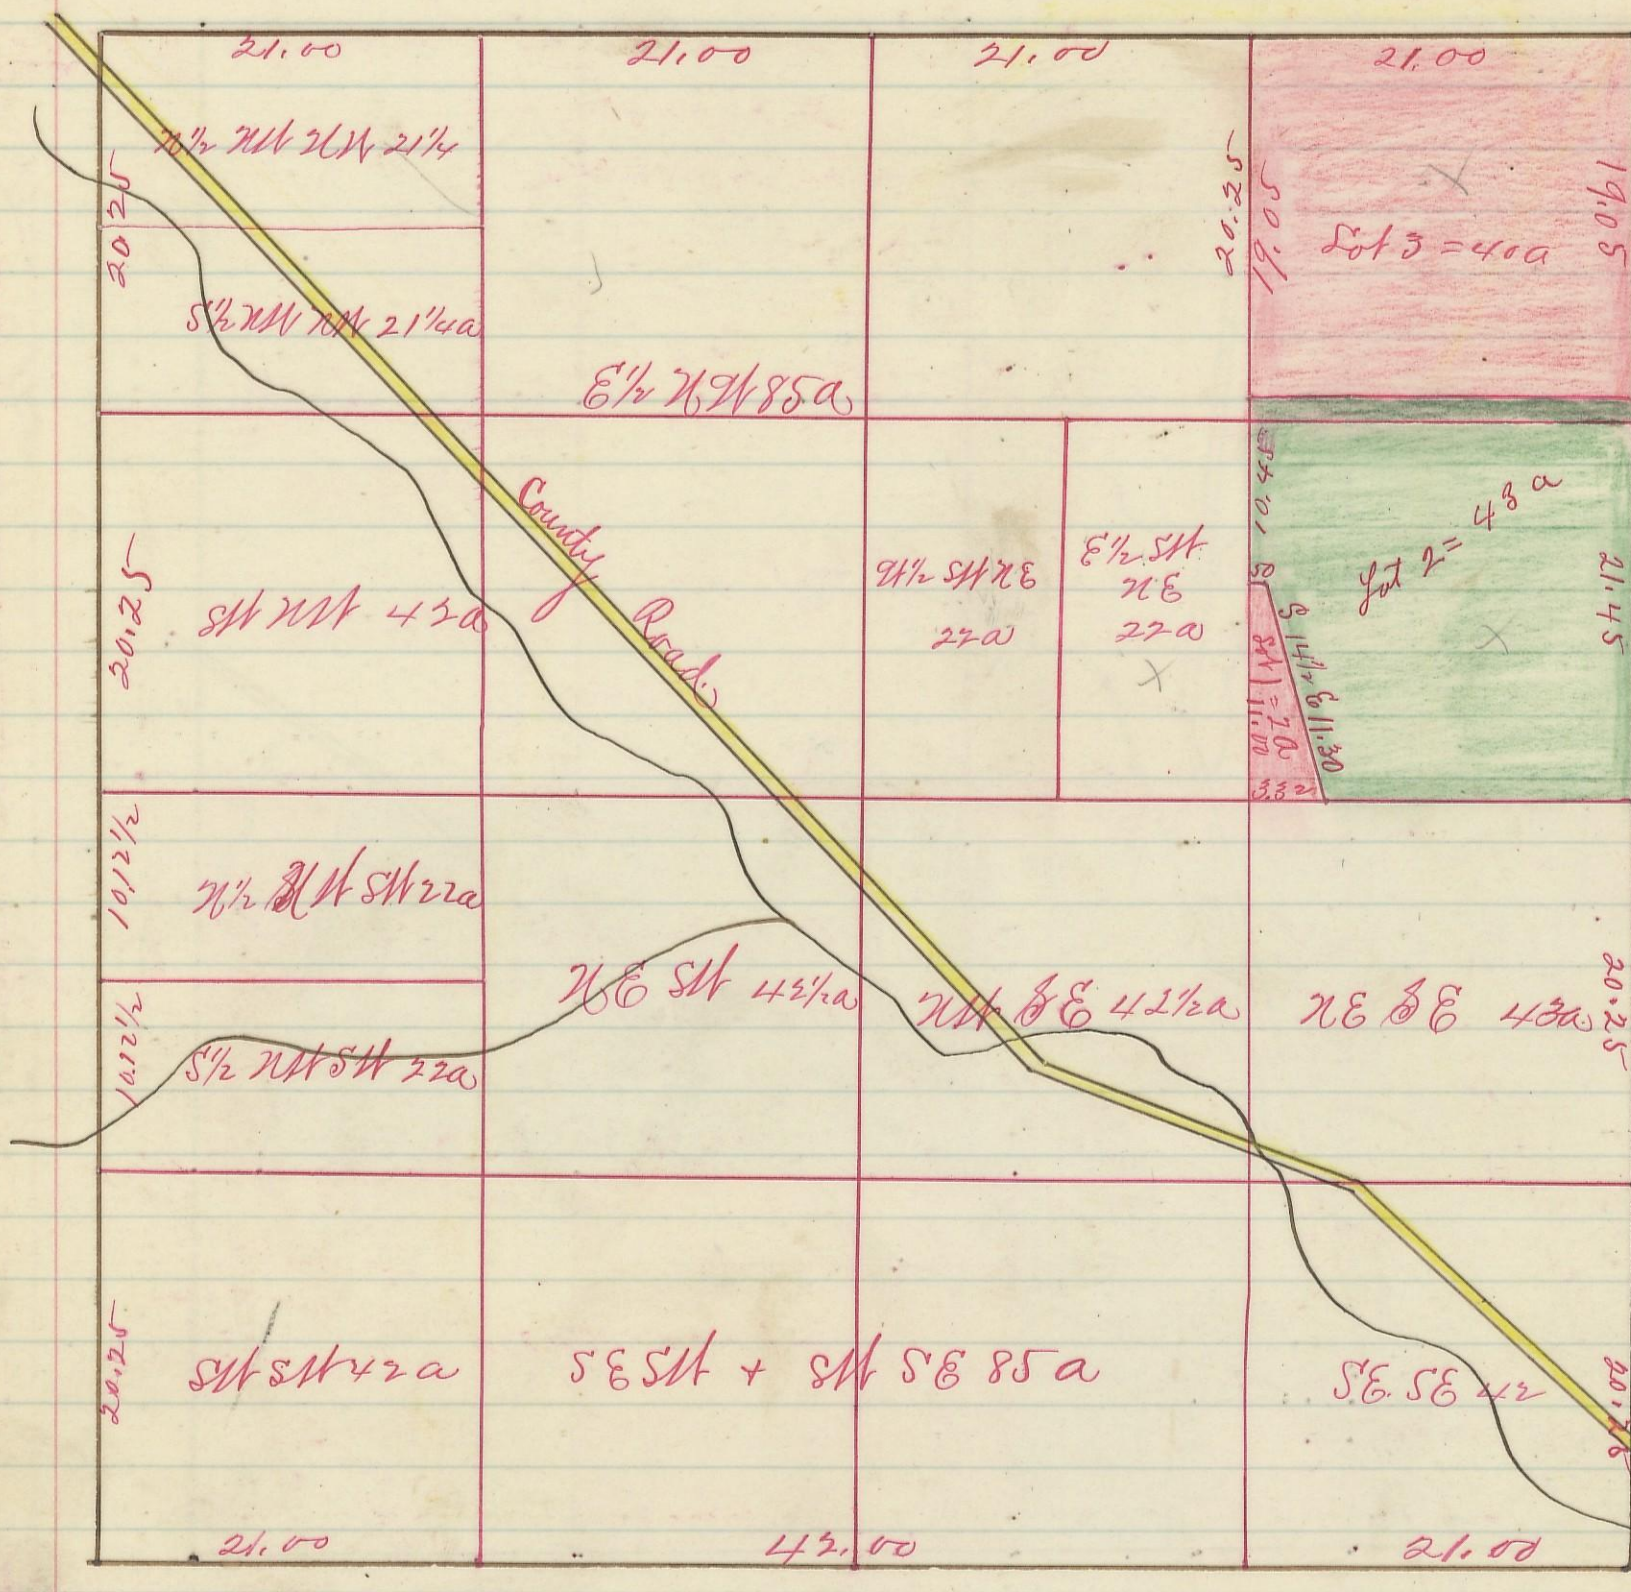 21.00
21.00
21.00
21.00
N½ NW NW 21¼
20.25
S½ NW NW 21¼a
E½ NW 85a
20.25
19.05
Lot 3 = 40a
19.05
20.25
SW NW 42a
County
Road.
W½ SW NE
22a
E½ SW
NE
22a
10.45
S
Lot 2 = 43a
21.45
S 14½ E 11.30
Lot 1 = 2a
3.32
10.12½
N½ NW SW 22a
10.12½
S½ NW SW 22a
NE SW 42½a
NW SE 42½a
NE SE 43a
20.25
20.25
SW SW 42a
SE SW + SW SE 85a
SE SE 42
21.00
42.00
21.00